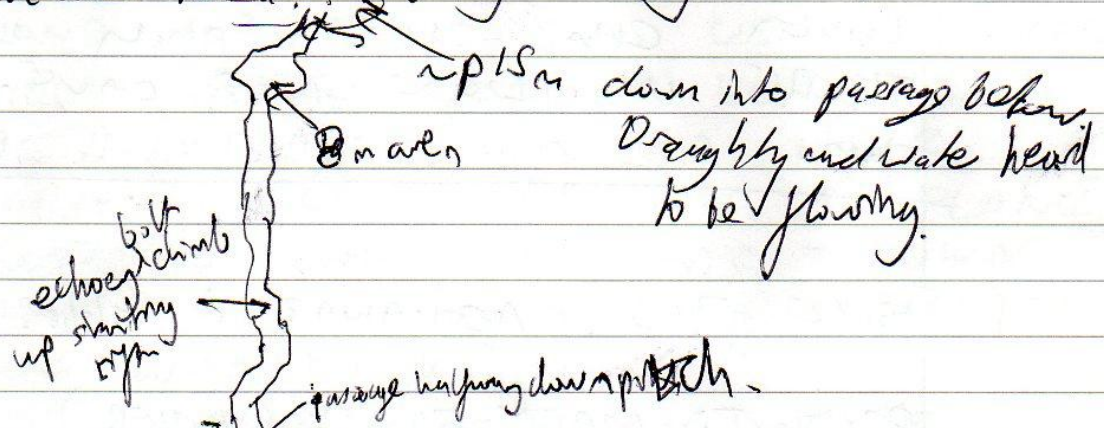 ~p15m down into passage below.
Draughty and water heard
to be flowing.
8m aven
bolt
echoey climb
up starting
right
passage halfway down pitch.